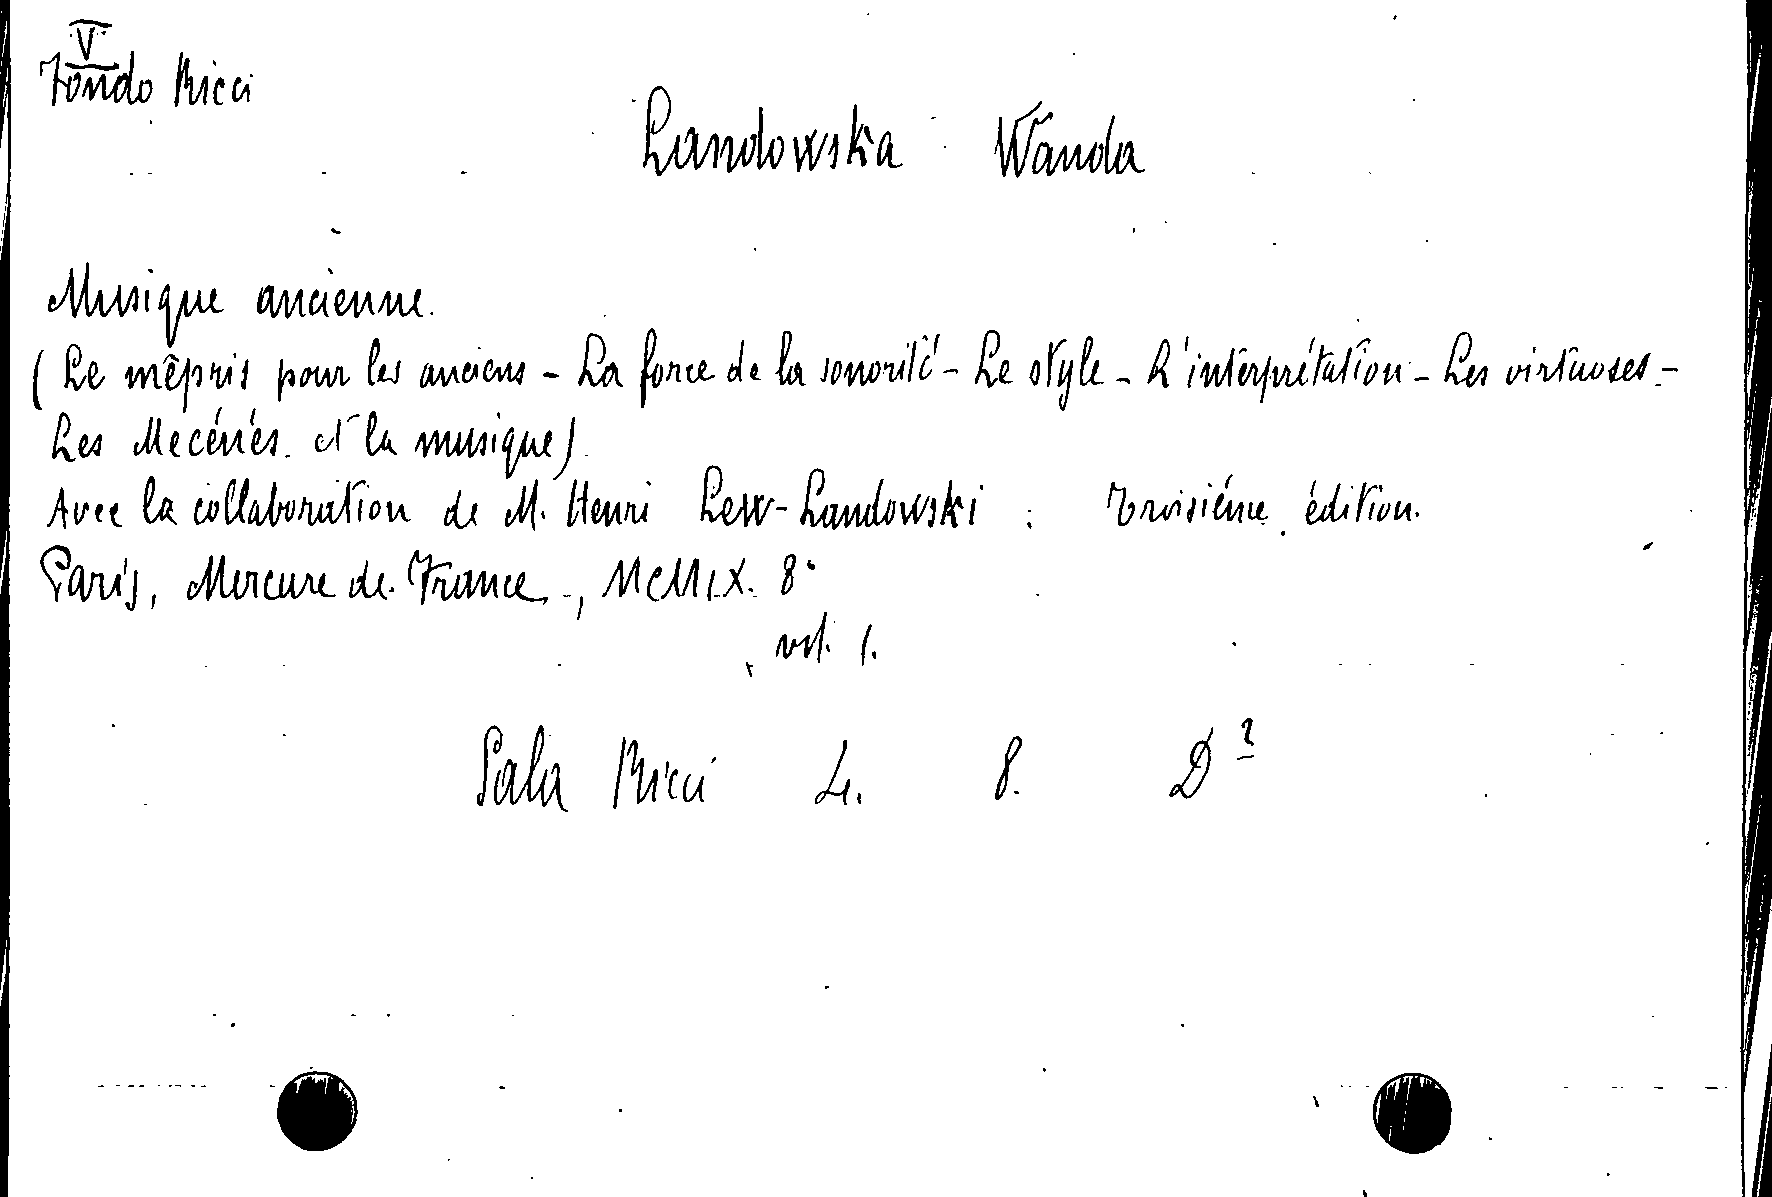 V
Fondo Ricci
Landowska Wanda
Musique ancienne.
(Le mêpris pour les anciens - La force de la sonorité - Le style - L'interprétation - Les virtuoses -
Les Mecénés et la musique)
Avec la collaboration de M. Henri Lew-Landowski : Troisiéme édition.
Paris, Mercure de France, MCMIX. 8°
vol. 1.
Sala Ricci L. 8. D²